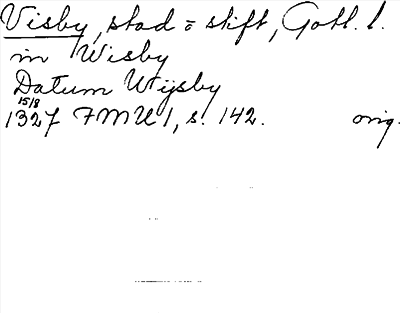 Visby, stad o stift, Gotl. l.
in Wisby
Datum Wijsby
15/8
1327 FMU 1, s. 142. orig.